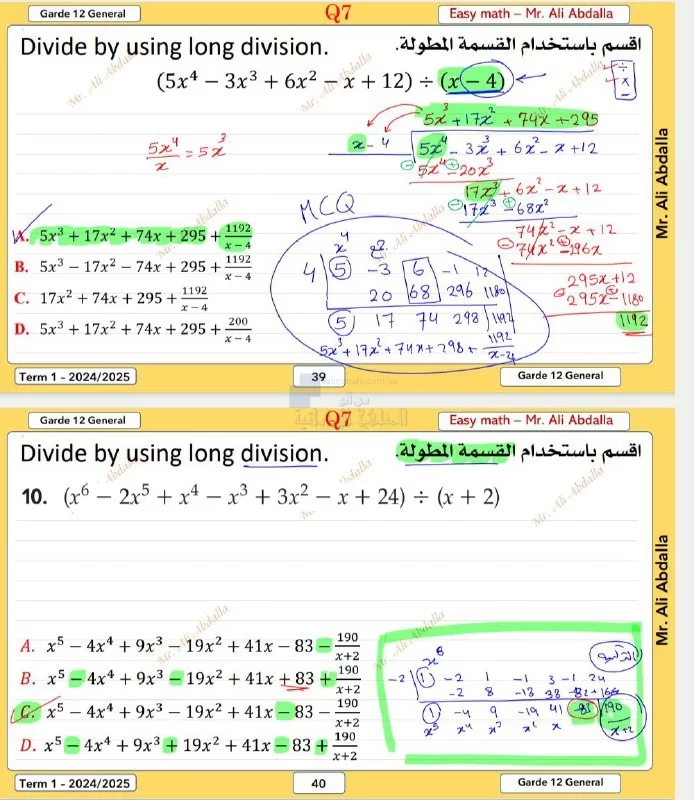 Garde 12 General
Q7
Easy math – Mr. Ali Abdalla
Divide by using long division.
اقسم باستخدام القسمة المطولة.
(5x⁴ − 3x³ + 6x² − x + 12) ÷ (x − 4)
÷
×
−
5x³ + 17x² + 74x + 295
x − 4
5x⁴ − 3x³ + 6x² − x + 12
5x⁴/x = 5x³
5x⁴ − 20x³
17x³ + 6x² − x + 12
17x³ − 68x²
74x² − x + 12
74x² − 296x
295x + 12
295x − 1180
1192
MCQ
A. 5x³ + 17x² + 74x + 295 + 1192/(x − 4)
B. 5x³ − 17x² − 74x + 295 + 1192/(x − 4)
C. 17x² + 74x + 295 + 1192/(x − 4)
D. 5x³ + 17x² + 74x + 295 + 200/(x − 4)
x⁴
4 5 −3 6 −1 12
20 68 296 1180
5 17 74 298 1192
5x³ + 17x² + 74x + 298 + 1192/(x − 4)
Mr. Ali Abdalla
Term 1 - 2024/2025
39
Garde 12 General
المناهج الإماراتية
Garde 12 General
Q7
Easy math – Mr. Ali Abdalla
Divide by using long division.
اقسم باستخدام القسمة المطولة.
10. (x⁶ − 2x⁵ + x⁴ − x³ + 3x² − x + 24) ÷ (x + 2)
A. x⁵ − 4x⁴ + 9x³ − 19x² + 41x − 83 − 190/(x+2)
B. x⁵ − 4x⁴ + 9x³ − 19x² + 41x + 83 + 190/(x+2)
C. x⁵ − 4x⁴ + 9x³ − 19x² + 41x − 83 − 190/(x+2)
D. x⁵ − 4x⁴ + 9x³ + 19x² + 41x − 83 + 190/(x+2)
x⁶
−2 1 −2 1 −1 3 −1 24
−2 8 −18 38 −82 +166
1 −4 9 −19 41 −83 190
x⁵ x⁴ x³ x² x x+2
Mr. Ali Abdalla
Term 1 - 2024/2025
40
Garde 12 General